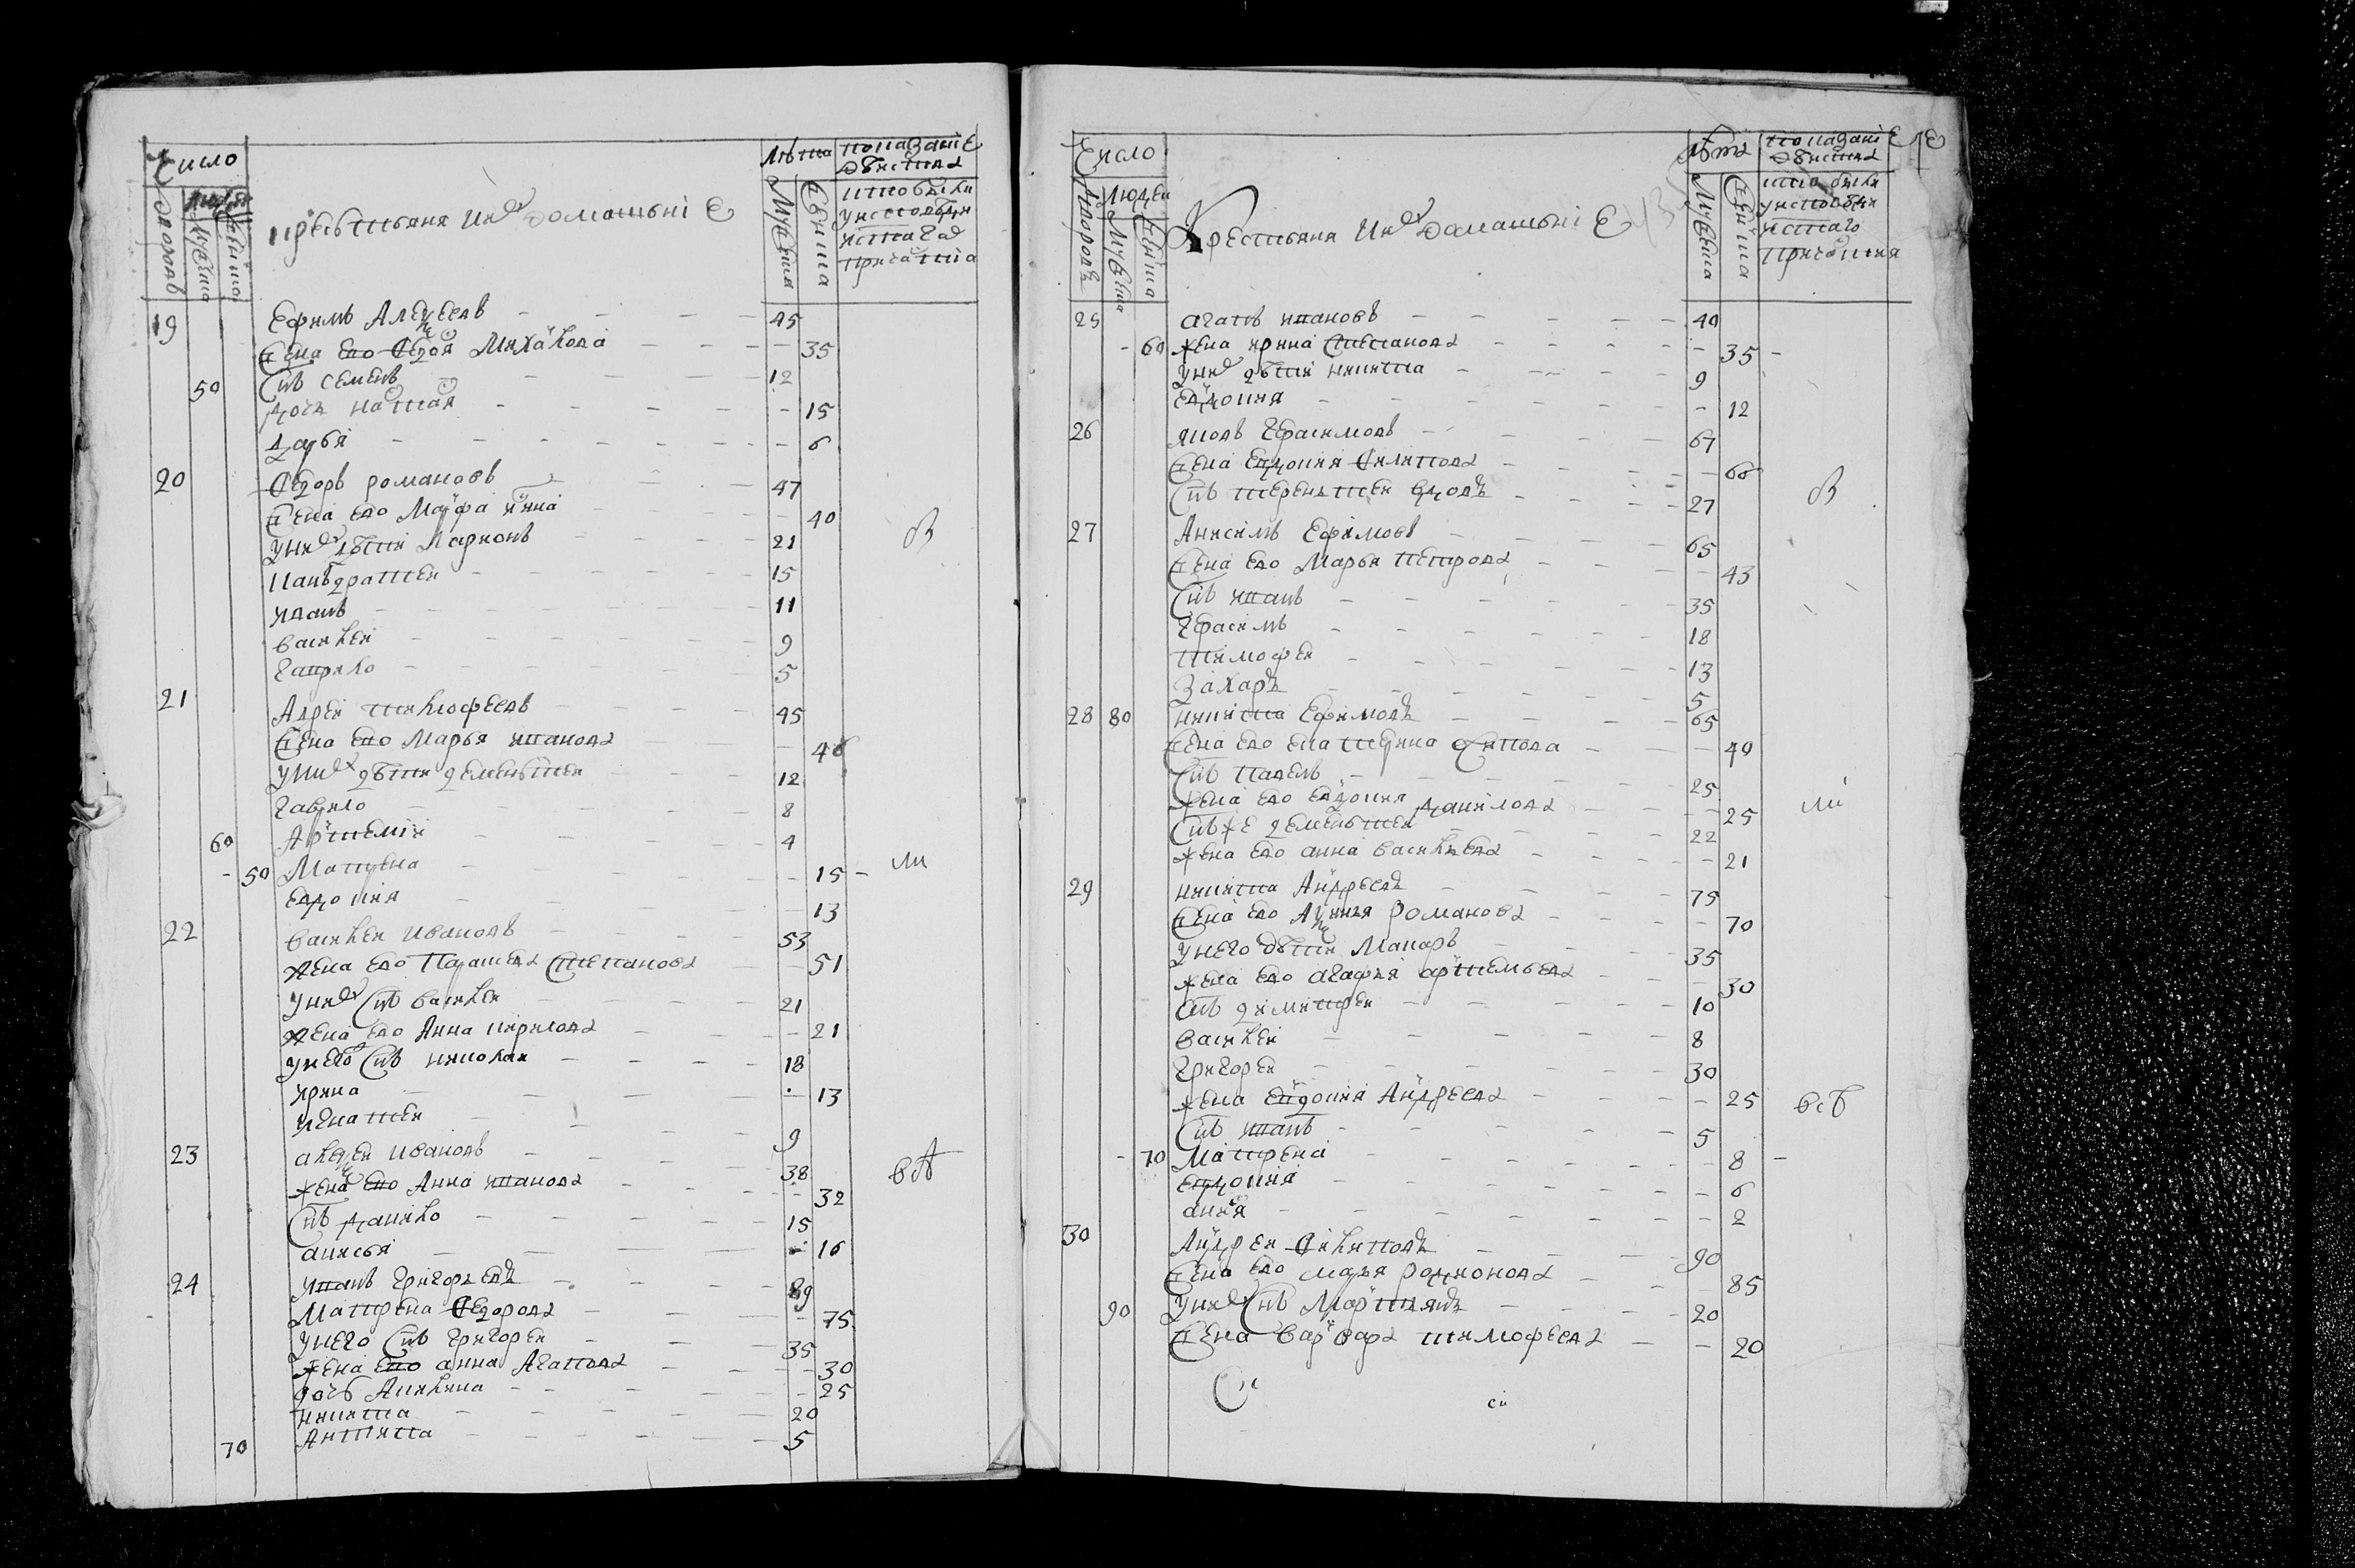 Число
Дворовъ
Людеи
Мужеска
Женска
крестьяня ихъ домашьніе
Лѣта
Мужеска
Женска
показаніе действа
кто были у исповѣди и стаго причастиа
19 Ефимъ Алексеевъ 45
жена ево Федося Михаилова 35
50 Снъ семенъ 12
дочь настася 15
дарья 6
20 Федоръ романовъ 47
жена ево Марфа 40
у нихъ дѣти Ларионъ 21
Кандратеи 15
иванъ 11
василеи 9
гаврило 5
21 Адреи тимофеевъ 45
жена ево Марья иванова 46
у нихъ дѣти дементеи 12
гаврило 8
60 Артемии 4
50 Матрена 15
евдокия 13
22 василеи ивановъ 53
жена ево Парасковя степанова 51
у нихъ Снъ василеи 21
жена ево Анна кирилова 21
у него Снъ николаи 18
ирина 13
игнатеи 9
23 алексеи ивановъ 38
жена ево Анна иванова 32
Снъ данило 15
анисья 16
24 иванъ григорьевъ 89
Матрена Федорова 75
у него Снъ григореи 35
жена ево анна Агапова 30
дочь Акилина 25
никита 20
70 Антипа 5
в
ли
вА
Число
Дворовъ
Людеи
Мужеска
Женска
Крестьяня ихъ домашьніе
Лѣта
Мужеска
Женска
показаніе действа
кто были у исповѣди и стаго причастия
25 агапъ ивановъ 40
60 жена ирина степанова 35
у нихъ дѣти никита 9
евдокия 12
26 яковъ герасимовъ 67
жена евдокия Филипова 60
Снъ терентеи вдовъ 27
27 Анисимъ Ефимовъ 65
жена ево Марья петрова 43
Снъ иванъ 35
герасимъ 18
тимофеи 13
захаръ 5
28 80 никита Ефимовъ 65
жена ево екатерина осипова 49
Снъ павелъ 25
жена ево евдокия данилова 25
Снъ же дементеи 22
жена ево анна василева 21
29 никита Андреевъ 75
жена ево романова 70
у него дѣти Макаръ 35
жена ево агафья артемьева 30
Снъ димитреи 10
василеи 8
григореи 30
жена евдокия Андреева 25
Снъ иванъ 5
70 Матрена 8
евдокия 6
анна 2
30 Андреи Филиповъ 90
жена ево марья родионова 85
90 у нихъ Снъ Мартинъ 20
жена варвара тимофеева 20
в
ли
всѣ